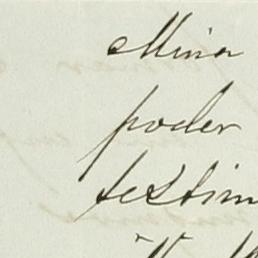 Mina
poder
testim